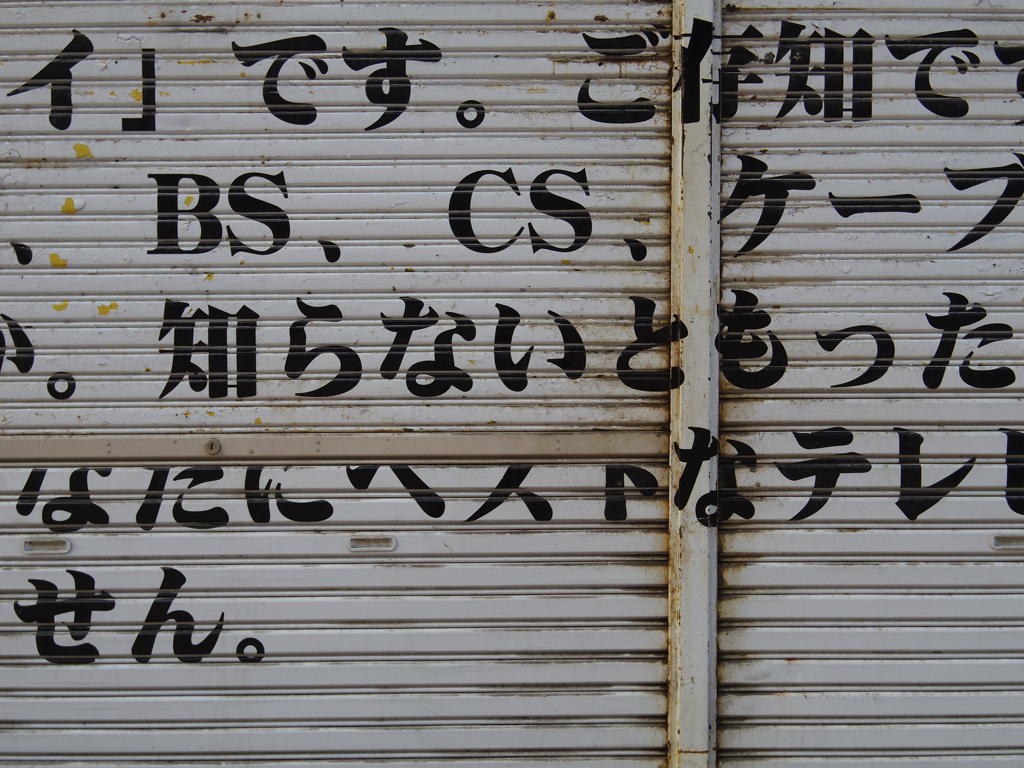 イ」です。 ご存知です
、 BS、 CS、ケーブ
か。 知らないともった
なたにベストなテレビ
せん。